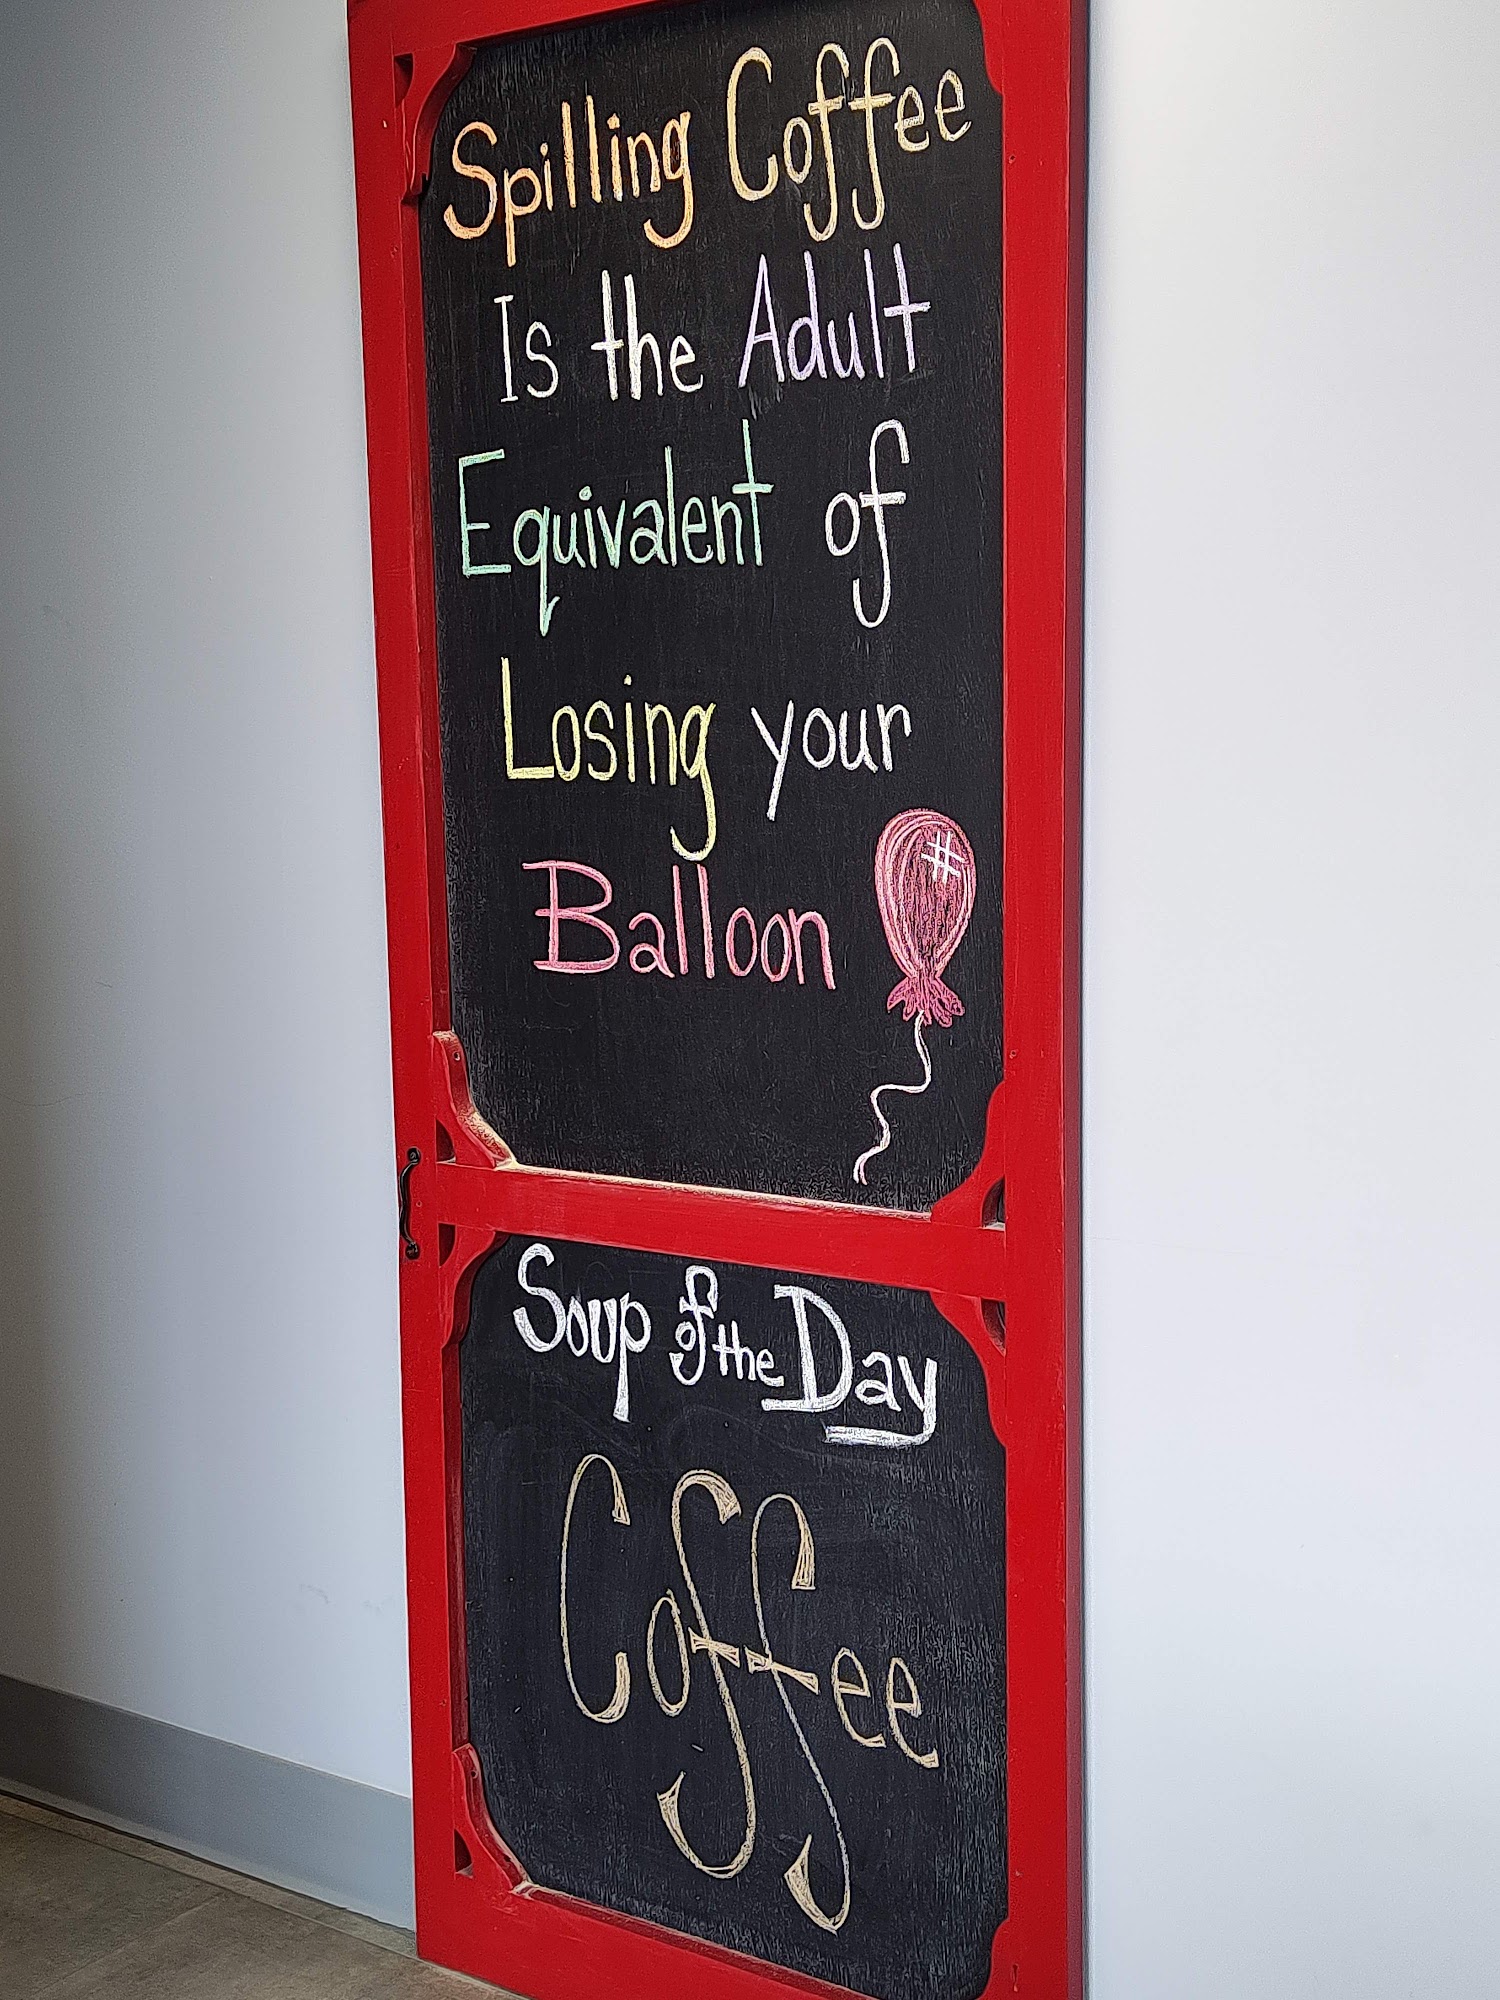 Spilling Coffee
Is the Adult
Equivalent of
Losing your
Balloon
Soup of the Day
Coffee